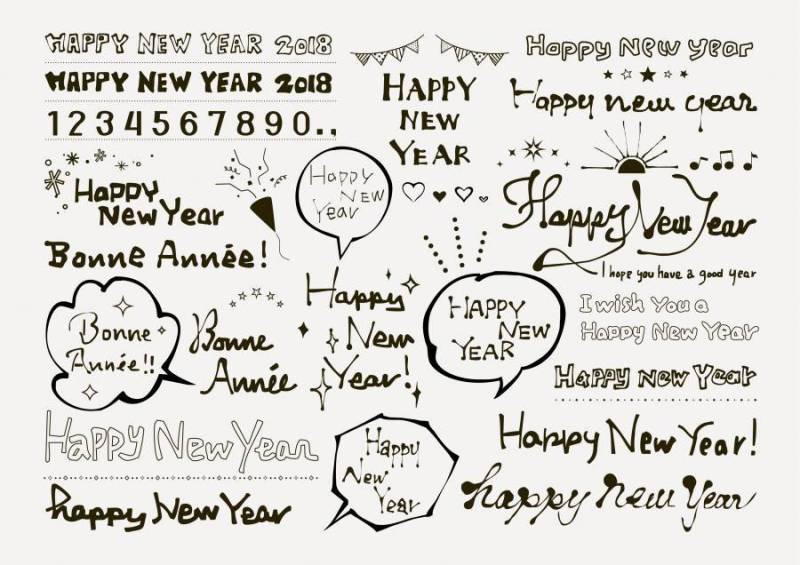 HAPPY NEW YEAR 2018
HAPPY NEW YEAR 2018
1234567890..
HAPPY
NEW
YEAR
Happy New year
Happy new year
Happy
New Year
Happy
New
Year
Happy New Year
I hope you have a good year
Bonne Année!
Bonne
Année!!
Bonne
Année
Happy
New
Year!
HAPPY
NEW
YEAR
I wish You a
Happy New Year
Happy New Year
Happy New Year
Happy
New
Year
Happy New Year!
happy New Year
happy new year